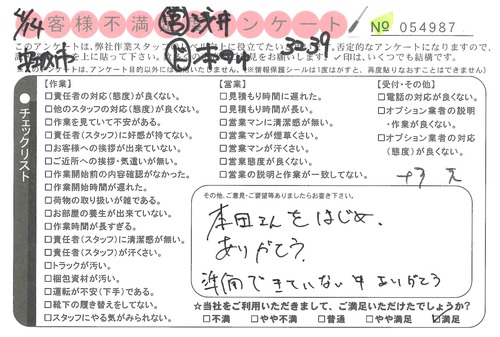 4/14 お客様不満 ㊂浅井 アンケート No 054987
このアンケートは、弊社作業スタッフの
に役立てたい
否定的なアンケートになりますので、
上に貼って下さい。
見をお願いします。✓印は、いくつでも結構です。
アンケートは、アンケート目的以外に
いたしません。(※情報保護シールは1度はがすと、再度貼りなおすことはできません)
本田 3239
チェックリスト
【作業】
□責任者の対応(態度)が良くない。
□他のスタッフの対応(態度)が良くない。
□作業を見ていて不安がある。
□責任者(スタッフ)に好感が持てない。
□お客様への挨拶が出来ていない。
□ご近所への挨拶・気遣いが無い。
□作業開始前の内容確認がなかった。
□作業開始時間が遅れた。
□荷物の取り扱いが雑である。
□お部屋の養生が出来ていない。
□作業時間が長すぎる。
□責任者(スタッフ)に清潔感が無い。
□責任者(スタッフ)が汗くさい。
□トラックが汚い。
□梱包資材が汚い。
□運転が不安(下手)である。
□靴下の履き替えをしてない。
□スタッフにやる気がみられない。
【営業】
□見積もり時間に遅れた。
□見積もり時間が長い。
□営業マンに清潔感が無い。
□営業マンが煙草くさい。
□営業マンが汗くさい。
□営業態度が良くない。
□営業の説明と作業が一致してない。
【受付・その他】
□電話の対応が良くない。
□オプション業者の説明
・作業が良くない。
□オプション業者の対応
(態度)が良くない。
その他、ご意見・ご要望等ありましたらお書き下さい。
本田さんをはじめ、
ありがとう
準備できていない中 ありがとう
☆当社をご利用いただきまして、ご満足いただけたでしょうか?
□不満 □やや不満 □普通 □やや満足 ☑満足